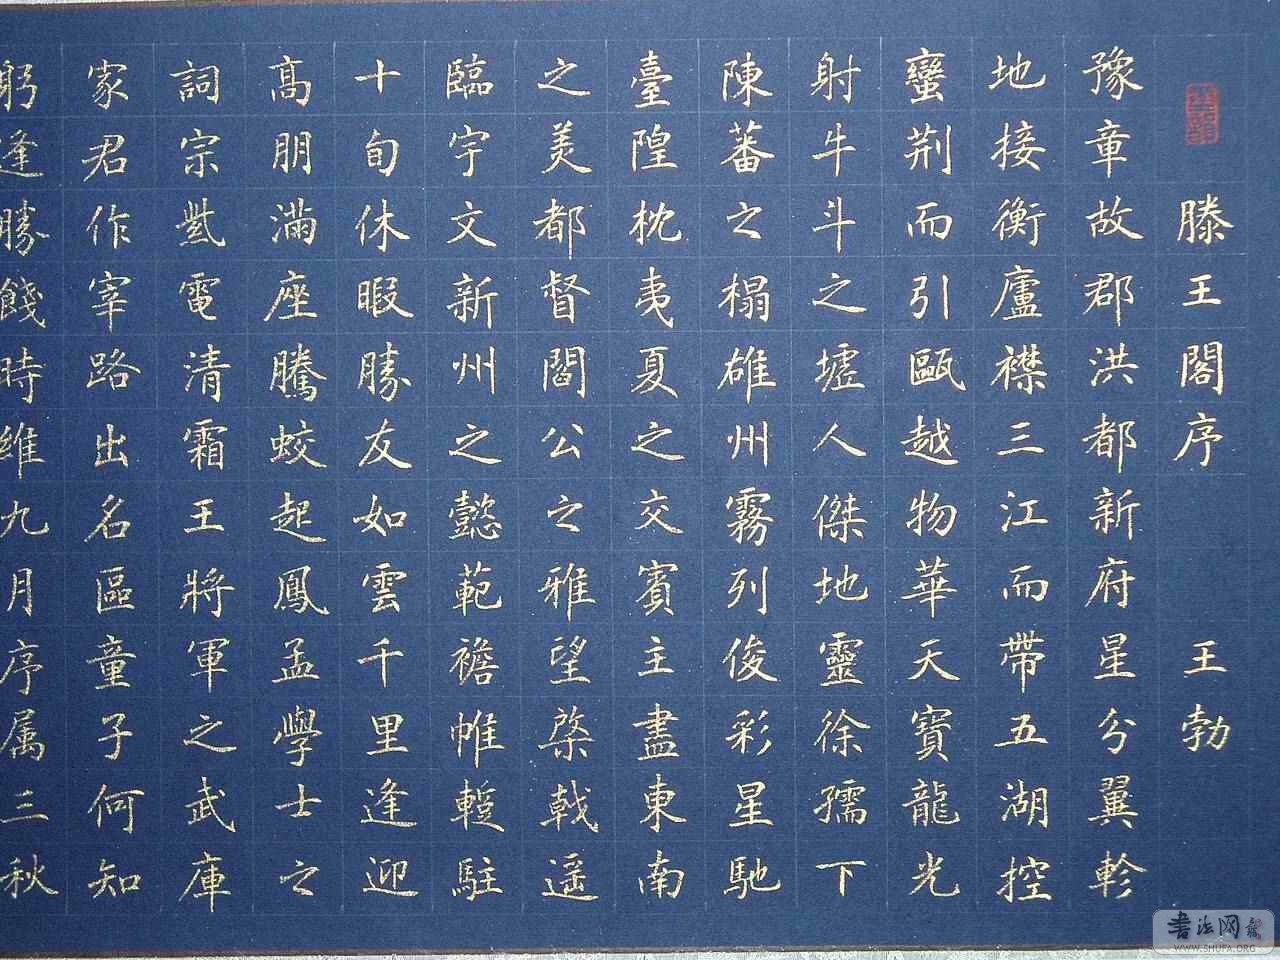 滕王閣序 王勃
豫章故郡洪都新府星分翼軫
地接衡廬襟三江而帶五湖控
蠻荆而引甌越物華天寶龍光
射牛斗之墟人傑地靈徐孺下
陳蕃之榻雄州霧列俊彩星馳
臺隍枕夷夏之交賓主盡東南
之美都督閻公之雅望棨戟遥
臨宇文新州之懿範襜帷暫駐
十旬休暇勝友如雲千里逢迎
高朋滿座騰蛟起鳳孟學士之
詞宗紫電清霜王將軍之武庫
家君作宰路出名區童子何知
躬逢勝餞時維九月序属三秋
书法网
WWW.SHUFA.ORG